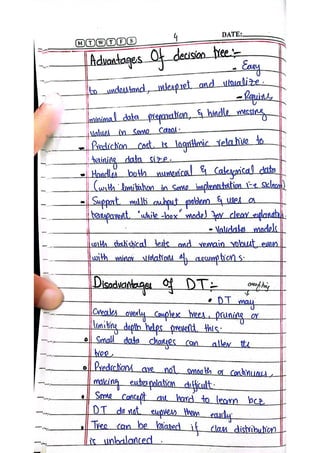 M T W T F S
4
DATE:
Advantages Of decision tree:-
- Easy
to understand, interpret and visualize.
- Require
minimal data preparation, & handle missing
values in some cases.
- Prediction cost is logrithmic relative to
training data size.
- Handles both numerical & Categorical data
(with limitation in some implementation i-e
- Support multi output problem & uses a
transparent "white-box" model for clear
- Validates models
with statistical tests and remain robust even
with minor violations of assumptions.
Disadvantages of DT:-
• DT may
Creates overly complex trees, pruning or
limiting depth helps prevent this.
• Small data changes can alter the
tree.
• Predictions are not smooth or continuous,
making extrapolation difficult.
• Some concept are hard to learn bcz
DT do not express them easily
• Tree can be biased if class distribution
is unbalanced.